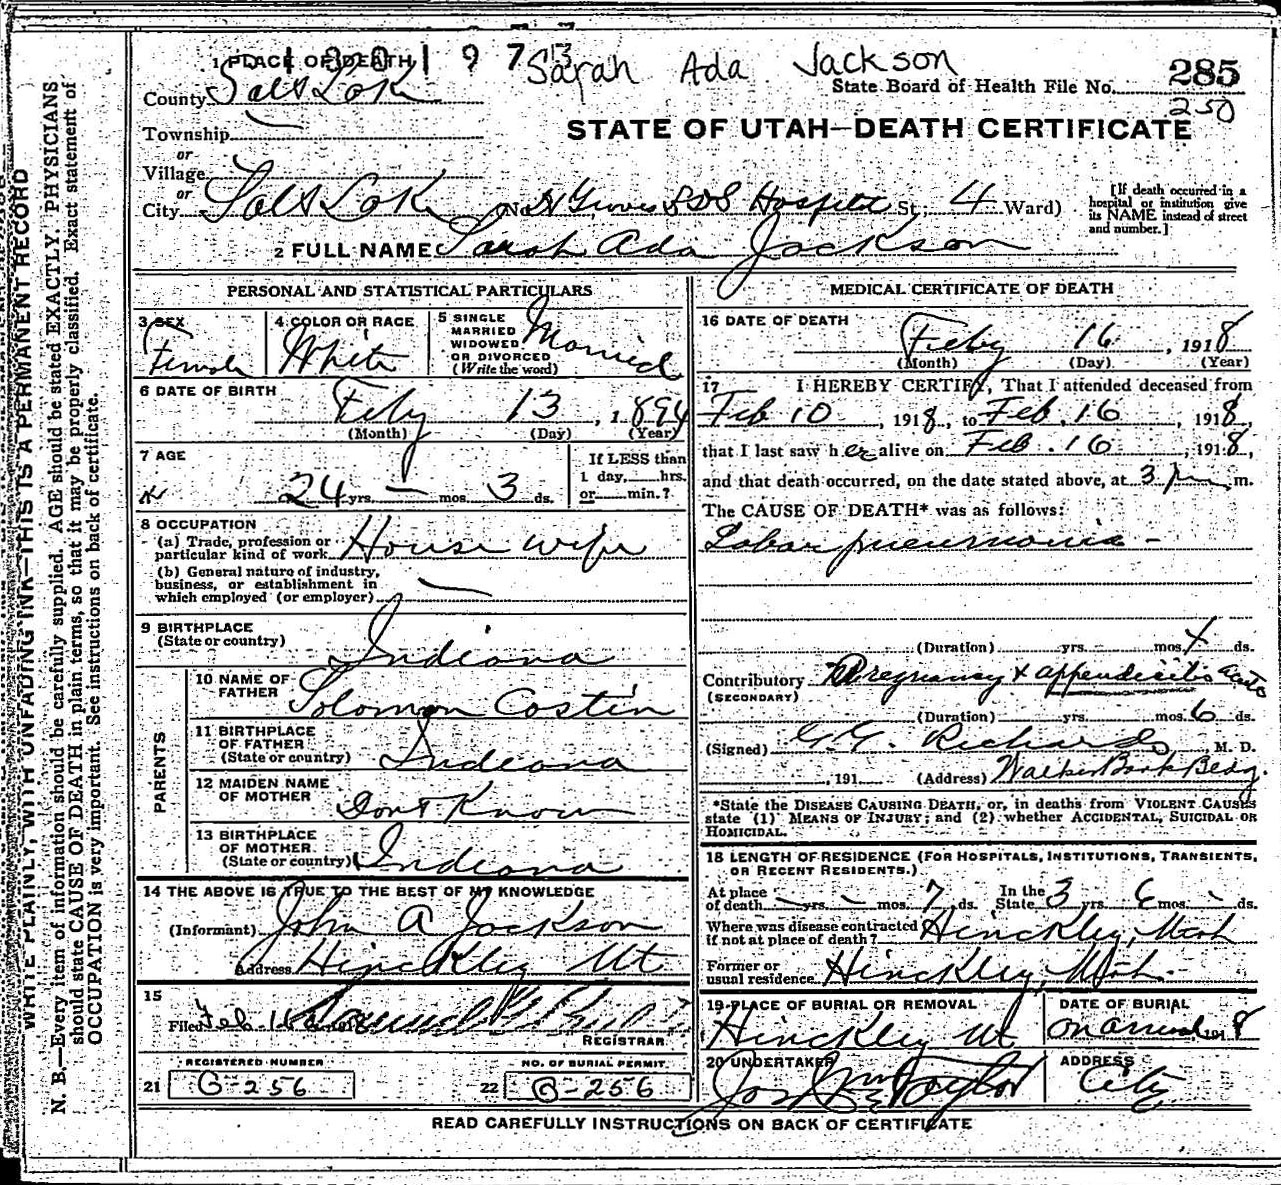 1 PLACE OF DEATH
Sarah Ada Jackson
County Salt Lak
State Board of Health File No. 285
250
Township
or
Village
or
STATE OF UTAH—DEATH CERTIFICATE
City Salt Lak No. Dr Groves LDS Hospital St; 4 Ward)
[If death occurred in a hospital or institution give its NAME instead of street and number.]
2 FULL NAME Sarah Ada Jackson
PERSONAL AND STATISTICAL PARTICULARS
3 SEX
Female
4 COLOR OR RACE
White
5 SINGLE
MARRIED
WIDOWED
OR DIVORCED
(Write the word)
Married
6 DATE OF BIRTH
Feby 13, 1894
(Month) (Day) (Year)
7 AGE
24 yrs. — mos. 3 ds.
If LESS than
1 day, hrs.
or min.?
8 OCCUPATION
(a) Trade, profession or
particular kind of work House wife
(b) General nature of industry,
business, or establishment in
which employed (or employer) —
9 BIRTHPLACE
(State or country)
Indiana
PARENTS
10 NAME OF
FATHER
Solomon Costin
11 BIRTHPLACE
OF FATHER
(State or country) Indiana
12 MAIDEN NAME
OF MOTHER
Dont Know
13 BIRTHPLACE
OF MOTHER
(State or country) Indiana
14 THE ABOVE IS TRUE TO THE BEST OF MY KNOWLEDGE
(Informant) John A Jackson
Address Hinckley Ut
15
Filed Feb
REGISTRAR
REGISTERED NUMBER
21 G-256
NO. OF BURIAL PERMIT
22 G-256
MEDICAL CERTIFICATE OF DEATH
16 DATE OF DEATH
Feby 16, 1918
(Month) (Day) (Year)
17 I HEREBY CERTIFY, That I attended deceased from
Feb 10, 1918, to Feb. 16, 1918,
that I last saw her alive on Feb. 16, 1918,
and that death occurred, on the date stated above, at 3 p m.
The CAUSE OF DEATH* was as follows:
Lobar pneumonia -
(Duration) yrs. mos. ds.
Contributory Pregnancy & appendicitis acute
(SECONDARY)
(Duration) yrs. mos. 6 ds.
(Signed) G. G. Richards, M. D.
, 191 (Address) Walker Bank Bldg.
*State the DISEASE CAUSING DEATH, or, in deaths from VIOLENT CAUSES
state (1) MEANS OF INJURY; and (2) whether ACCIDENTAL, SUICIDAL OR
HOMICIDAL.
18 LENGTH OF RESIDENCE (FOR HOSPITALS, INSTITUTIONS, TRANSIENTS,
OR RECENT RESIDENTS.)
At place of death — yrs. — mos. 7 ds. In the State 3 yrs 6 mos. - ds.
Where was disease contracted
if not at place of death? Hinckley, Utah
Former or
usual residence Hinckley, Utah.
19 PLACE OF BURIAL OR REMOVAL
Hinckley Ut
DATE OF BURIAL
On arrival 1918
20 UNDERTAKER
Jos Wm Taylor
ADDRESS
City
READ CAREFULLY INSTRUCTIONS ON BACK OF CERTIFICATE
WRITE PLAINLY, WITH UNFADING INK—THIS IS A PERMANENT RECORD
N. B.—Every item of information should be carefully supplied. AGE should be stated EXACTLY. PHYSICIANS
should state CAUSE OF DEATH in plain terms, so that it may be properly classified. Exact statement of
OCCUPATION is very important. See instructions on back of certificate.